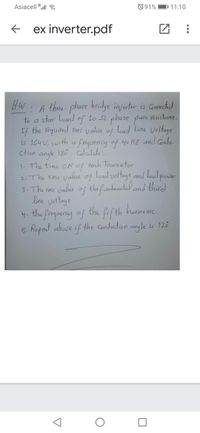 Asiacell
91% 11:10
ex inverter.pdf
H.W: A three-phase bridge inverter is Connected
to a star load of 10 Ω/phase pure resistance.
If the required rms value of load line voltage
is 264 V, with a frequency of 40 HZ and Condu-
ction angle 180°. Calculate:
1- The time ON of each Transistor.
2- The rms value of load voltage and load power
3- The rms value of the fundamental and third
line voltage
4- the frequency of the fifth harmonic
5- Repeat above if the conduction angle is 120°